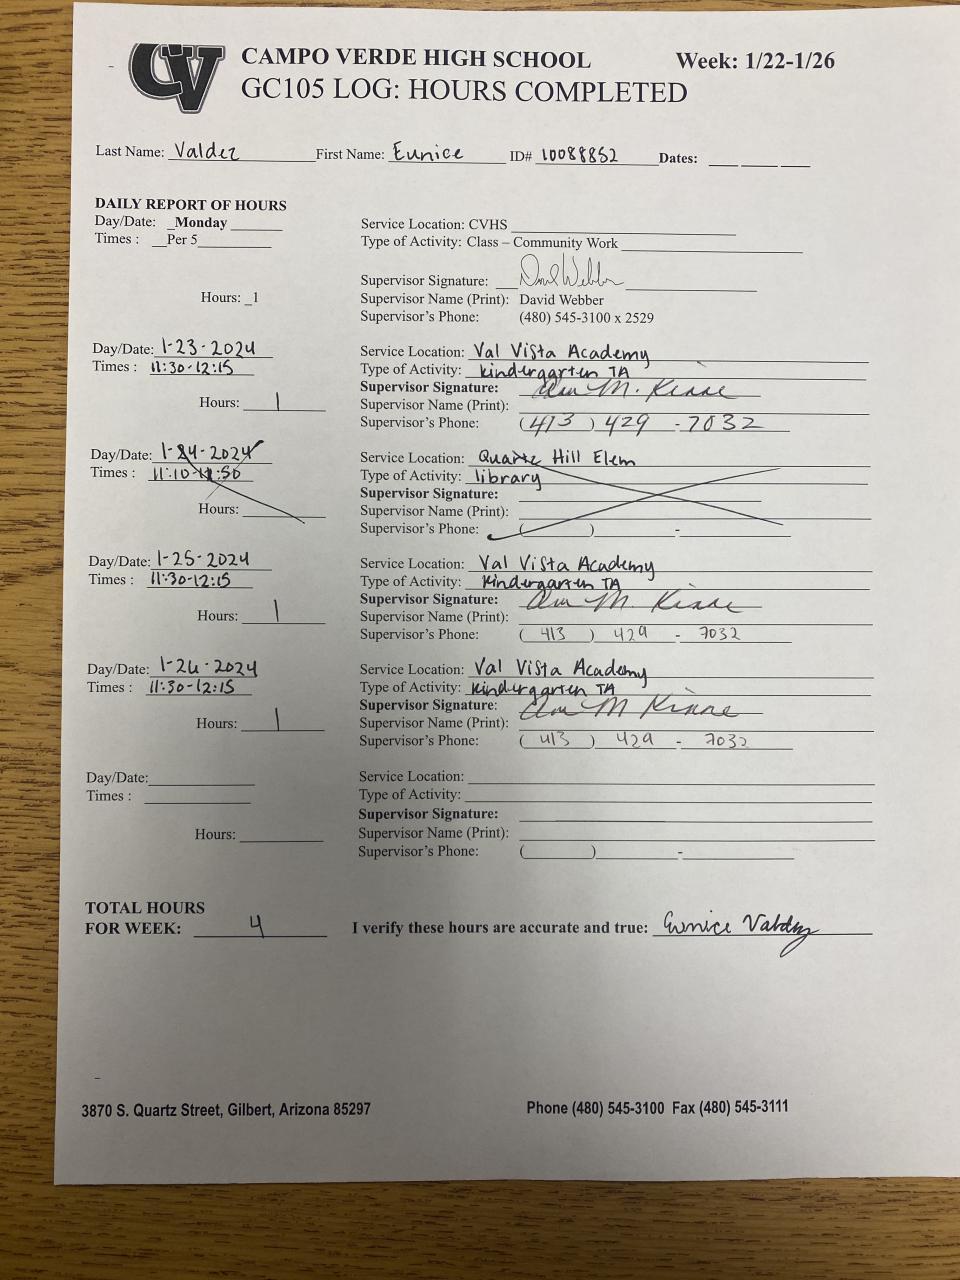 CV CAMPO VERDE HIGH SCHOOL Week: 1/22-1/26
GC105 LOG: HOURS COMPLETED
Last Name: Valdez First Name: Eunice ID# 10088852 Dates: ___ ___ ___
DAILY REPORT OF HOURS
Day/Date: _Monday Service Location: CVHS
Times : __Per 5 Type of Activity: Class – Community Work
Supervisor Signature: David Webber
Hours: _1 Supervisor Name (Print): David Webber
Supervisor's Phone: (480) 545-3100 x 2529
Day/Date: 1-23-2024 Service Location: Val Vista Academy
Times : 11:30-12:15 Type of Activity: kindergarten TA
Supervisor Signature: M. Kinne
Hours: 1 Supervisor Name (Print):
Supervisor's Phone: (413) 429 - 7032
Day/Date: 1-24-2024 Service Location: Quartz Hill Elem
Times : 11:10- Type of Activity: library
Supervisor Signature:
Hours: Supervisor Name (Print):
Supervisor's Phone: ( ) -
Day/Date: 1-25-2024 Service Location: Val Vista Academy
Times : 11:30-12:15 Type of Activity: kindergarten TA
Supervisor Signature: M. Kinne
Hours: 1 Supervisor Name (Print):
Supervisor's Phone: ( 413 ) 429 - 7032
Day/Date: 1-26-2024 Service Location: Val Vista Academy
Times : 11:30-12:15 Type of Activity: kindergarten TA
Supervisor Signature: M Kinne
Hours: 1 Supervisor Name (Print):
Supervisor's Phone: ( 413 ) 429 - 7032
Day/Date: Service Location:
Times : Type of Activity:
Supervisor Signature:
Hours: Supervisor Name (Print):
Supervisor's Phone: ( ) -
TOTAL HOURS
FOR WEEK: 4 I verify these hours are accurate and true: Eunice Valdez
3870 S. Quartz Street, Gilbert, Arizona 85297 Phone (480) 545-3100 Fax (480) 545-3111